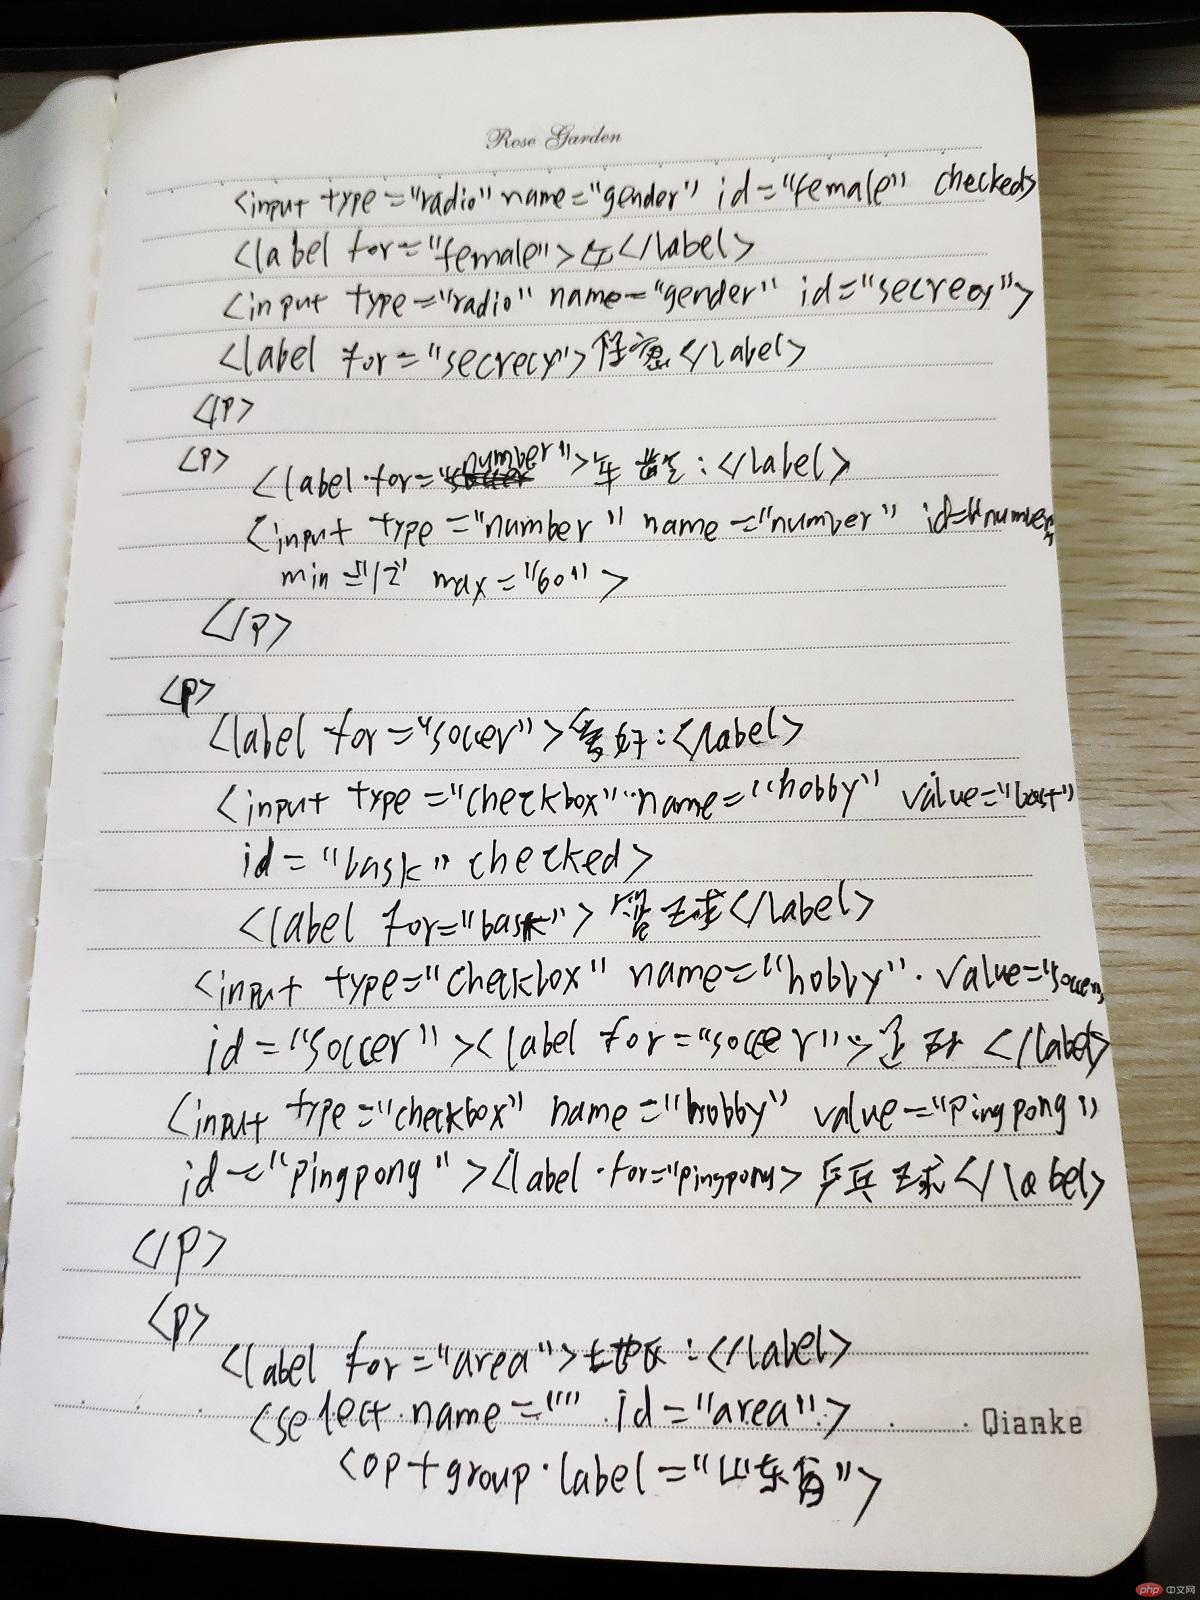 Rose Garden
<input type="radio" name="gender") id="female" checked>
<label for="female">女</label>
<input type="radio" name="gender" id="secrecy">
<label for="secrecy">任意</label>
</P>
<P>
<label for="number">年龄:</label>
<input type="number" name="number" id="number"
min="12" max="60">
</P>
<P>
<label for="soccer">爱好:</label>
<input type="checkbox" name="hobby" value="bast"
id="bask" checked>
<label for="bask">篮球</label>
<input type="checkbox" name="hobby" value="soccer"
id="soccer"><label for="soccer">足球</label>
<input type="checkbox" name="hobby" value="pingpong"
id="pingpong"><label for="pingpong>乒兵球</label>
</P>
<P>
<label for="area">地区:</label>
<select name="" id="area">
Qianke
<optgroup label="山东省">
php 中文网